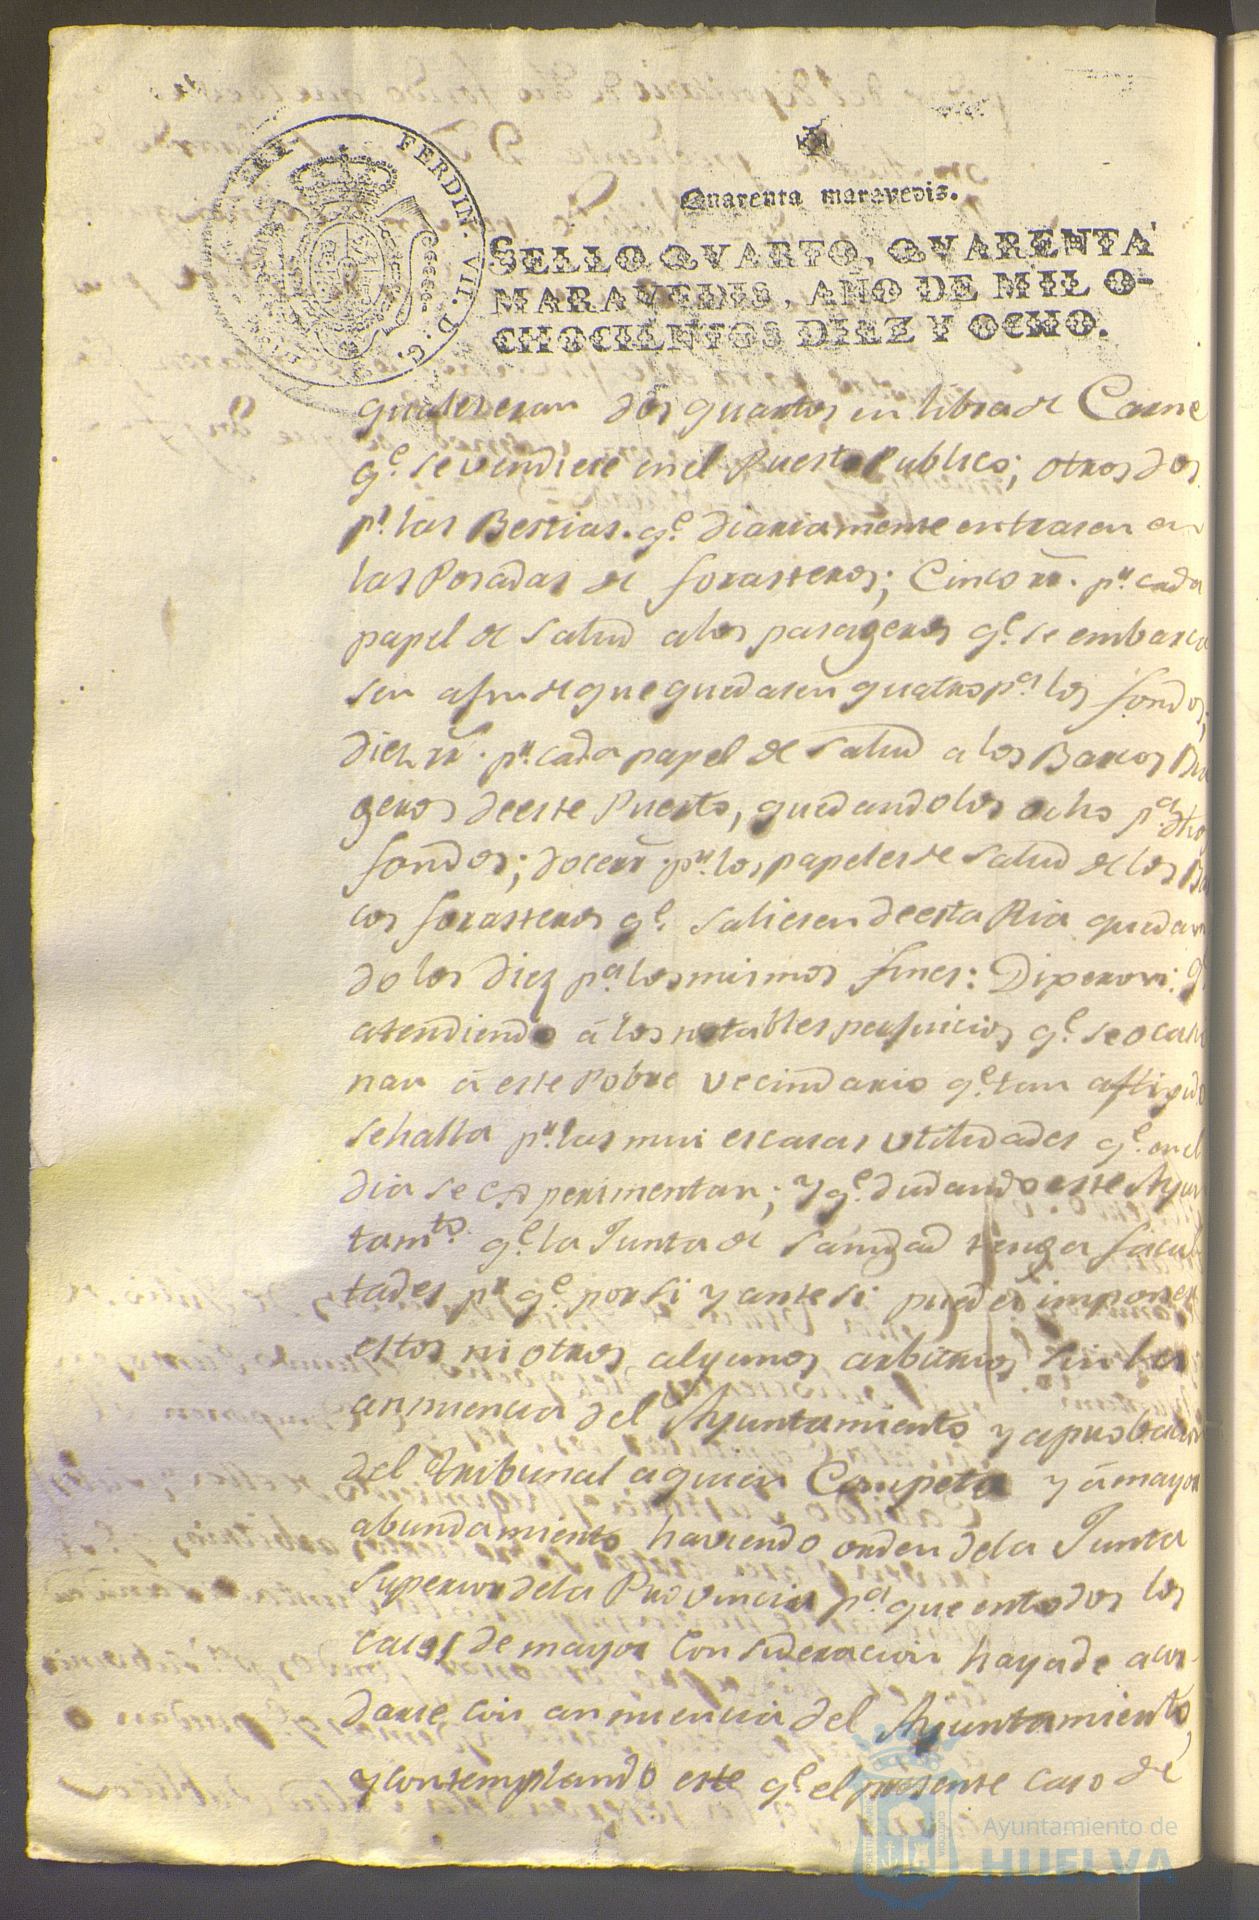 HISP. REX. FERDIN. VII. D. G.
Quarenta maravedis.
SELLO QVARTO, QVARENTA
MARAVEDIS, AÑO DE MIL O-
CHOCIENTOS DIEZ Y OCHO.
quales eran dos quartos en libra de Carne
qe. se vendiese en el Puesto Publico; otros dos
pr. las Bestias qe. diariamente entrasen en
las Posadas de forasteros; Cinco rr. pr. cada
papel de Salud a los pasageros qe. se embarca
sen a fin de que quedasen quatro pa. los fondos;
diez rr. pr. cada papel de Salud a los Barcos
geros de este Puerto, quedandolos ocho pa. dhos
fondos; doce rr. pr. los papeles de Salud de los Bar
cos forasteros qe. saliesen de esta Ria quedan
do los diez pa. los mismos fines: Dixeron: qe.
atendiendo á los notables perjuicios qe. se ocasio
nan á este Pobre vecindario qe. tan afligido
se halla pr. las mui escasas utilidades qe. en el
dia se experimentan; y qe. dudando este Ayun
tamto. qe. la Junta de Sanidad tenga facul
tades pa. qe. por si y ante si pueda imponer
estos ni otros algunos arbitrios sin la
anuencia del Ayuntamiento y aprobacion
del tribunal a quien Competa y á mayor
abundamiento haviendo orden de la Junta
Superior de la Provincia pa. que en todos los
casos de mayor Consideracion haya de acor-
darse con anuencia del Ayuntamiento,
y contemplando este qe. el presente caso de
Ayuntamiento de
HUELVA